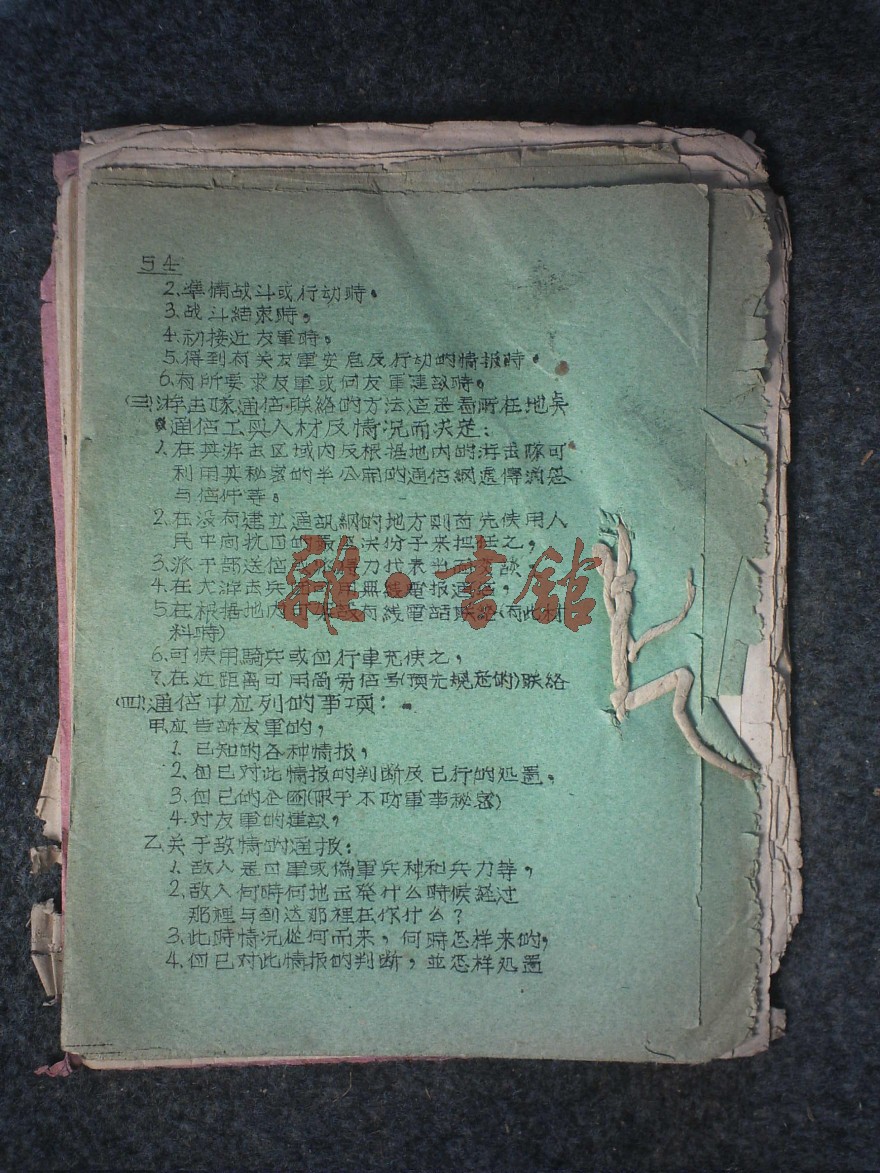 54
2、準備战斗或行动時。
3、战斗結束時。
4、初接近友軍時。
5、得到有关友軍安危及行动的情报時。
6、有所要求友軍或向友軍建設時。
(三)游击隊通信联络的方法這是看所在地点
通信工具人材及情况而决定:
1、在其游击区域内及根据地内的游击隊可
利用其秘密的半公開的通信網遞傳消息
与信件等。
2、在没有建立通訊網的地方則首先使用人
民中向抗日的最坚决份子来担任之,
3、派干部送信或代表当面
4、在大游击兵用無线電报通信,
5、在根据地内可有线電話联络(有此材
料時)
6、可使用騎兵或自行車充使之,
7、在近距离可用简易信号(預先規定的)联络
(四)通信中应列的事項:
甲应告訴友軍的,
1、已知的各种情报,
2、自己对此情报的判断及已行的处置,
3、自己的企图(限于不防軍事秘密)
4、对友軍的建設,
乙关于敌情的通报:
1、敌人是日軍或偽軍兵种和兵力等,
2、敌人何時何地出發什么時候經过
那裡与到达那裡在作什么?
3、此時情况從何而来,何時怎样来的,
4、自己对此情报的判断,並怎样处置
雜·書館